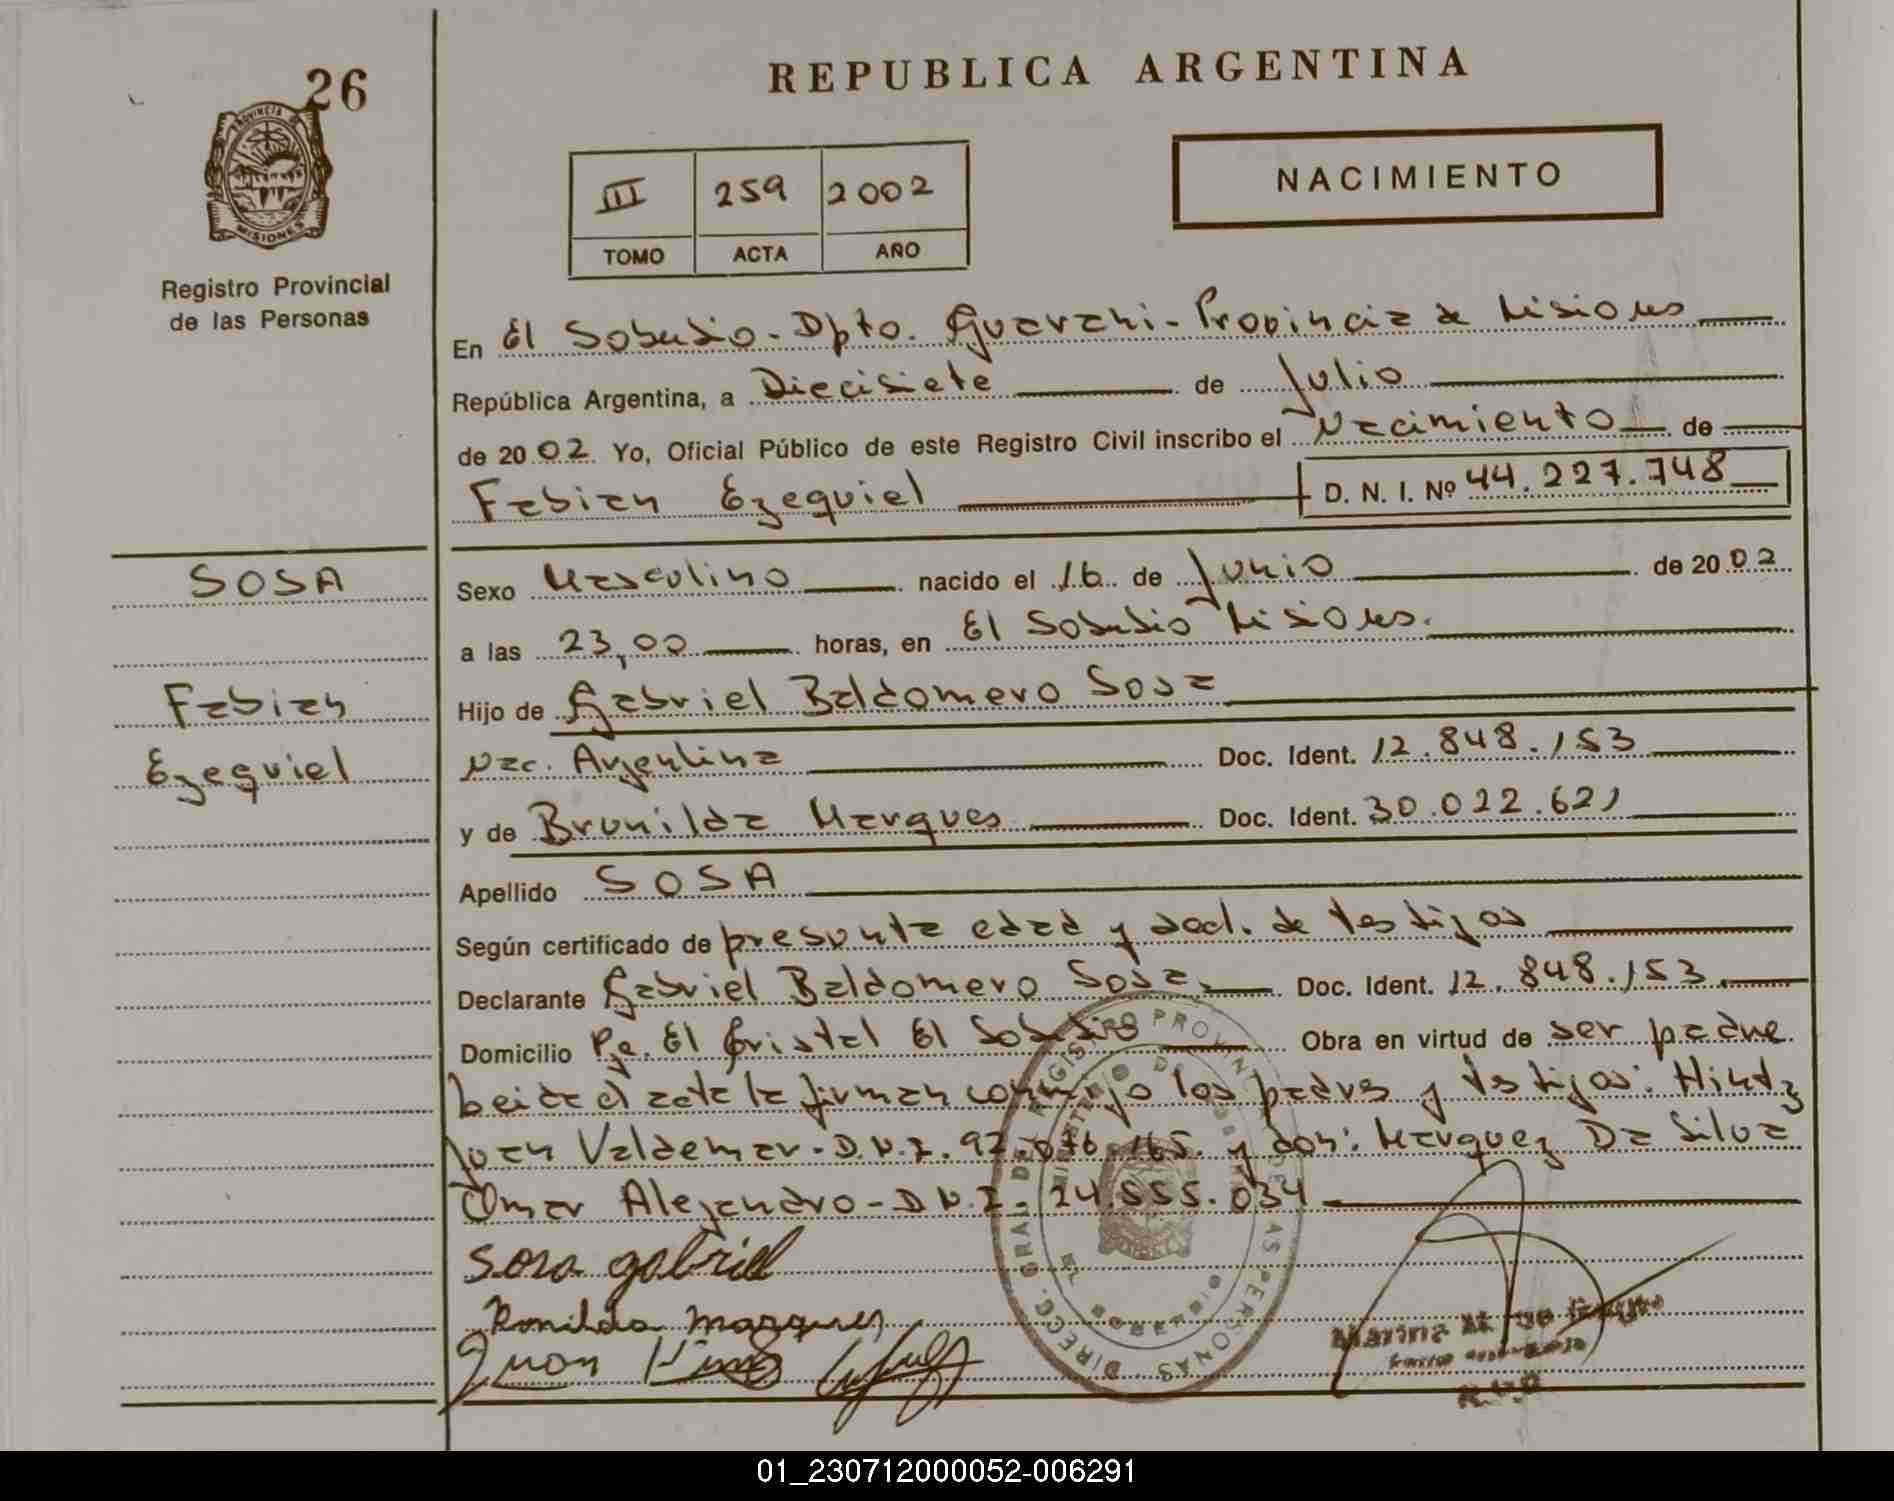 26
REPUBLICA ARGENTINA
PROVINCIA DE
MISIONES
Registro Provincial
de las Personas
III 259 2002
TOMO ACTA AÑO
NACIMIENTO
En El Soberbio - Dpto. Guarani - Provincia de Misiones
República Argentina, a Diecisiete de Julio
de 2002 Yo, Oficial Público de este Registro Civil inscribo el Nacimiento de
Fabian Ezequiel D. N. I. Nº 44.227.748
SOSA
Fabian
Ezequiel
Sexo Masculino nacido el 16 de Junio de 2002
a las 23,00 horas, en El Soberbio Misiones.
Hijo de Gabriel Baldomero Sosa
Nac. Argentina Doc. Ident. 12.848.153
y de Brunilda Marques Doc. Ident. 30.022.621
Apellido SOSA
Según certificado de presunta edad y decl. de testigos
Declarante Gabriel Baldomero Sosa Doc. Ident. 12.848.153
Domicilio Pje. El Cristal El Soberbio Obra en virtud de ser padre
Leida el acta la firman conmigo los padres y testigos: Hintz
Juan Valdemar - D.N.I. 92.076.165. y don: Marquez Da Silva
Omar Alejandro - D.N.I. 24.555.034
Sosa gabriel
Ronilda marques
Juan Hintz
01_230712000052-006291